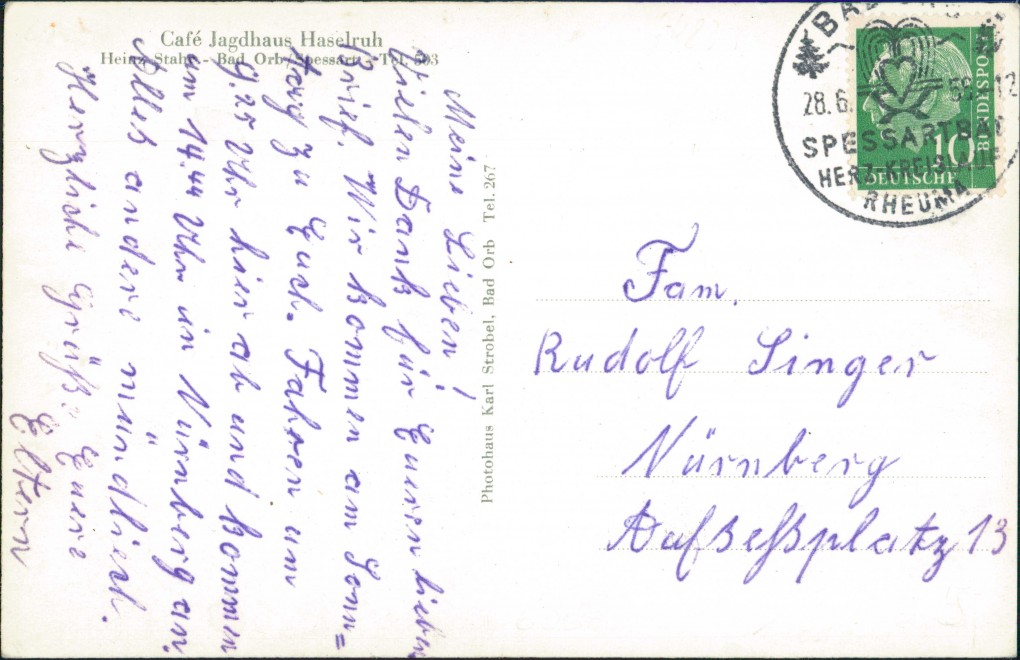 Café Jagdhaus Haselruh
Heinz Stahl - Bad Orb/Spessart - Tel. 503
Meine Lieben!
Vielen Dank für Euren lieben
Brief. Wir kommen am Sonn=
tag zu Euch. Fahren um
9.25 Uhr hier ab und kommen
um 14.44 Uhr in Nürnberg an.
Alles andere mündlich.
Herzliche Grüße Euere
Eltern
Photohaus Karl Strobel, Bad Orb Tel. 267
28.6.
12
SPESSARTBAD
HERZ-KREISLAUF
RHEUMA
10
DEUTSCHE
BUNDESPOST
Fam.
Rudolf Singer
Nürnberg
Aufseßplatz 13